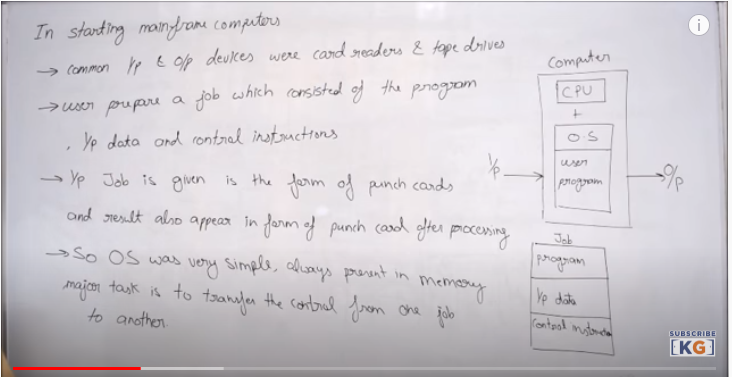 In starting mainframe computers
→ common I/p & O/p devices were card readers & tape drives
→ user prepare a job which consisted of the program
, I/p data and control instructions
→ I/p Job is given is the form of punch cards
and result also appear in form of punch card after processing
→ So OS was very simple, always present in memory
major task is to transfer the control from one job
to another
Computer
CPU
+
O.S
user
program
I/p
O/p
Job
program
I/p data
control
SUBSCRIBE
[KG]
i